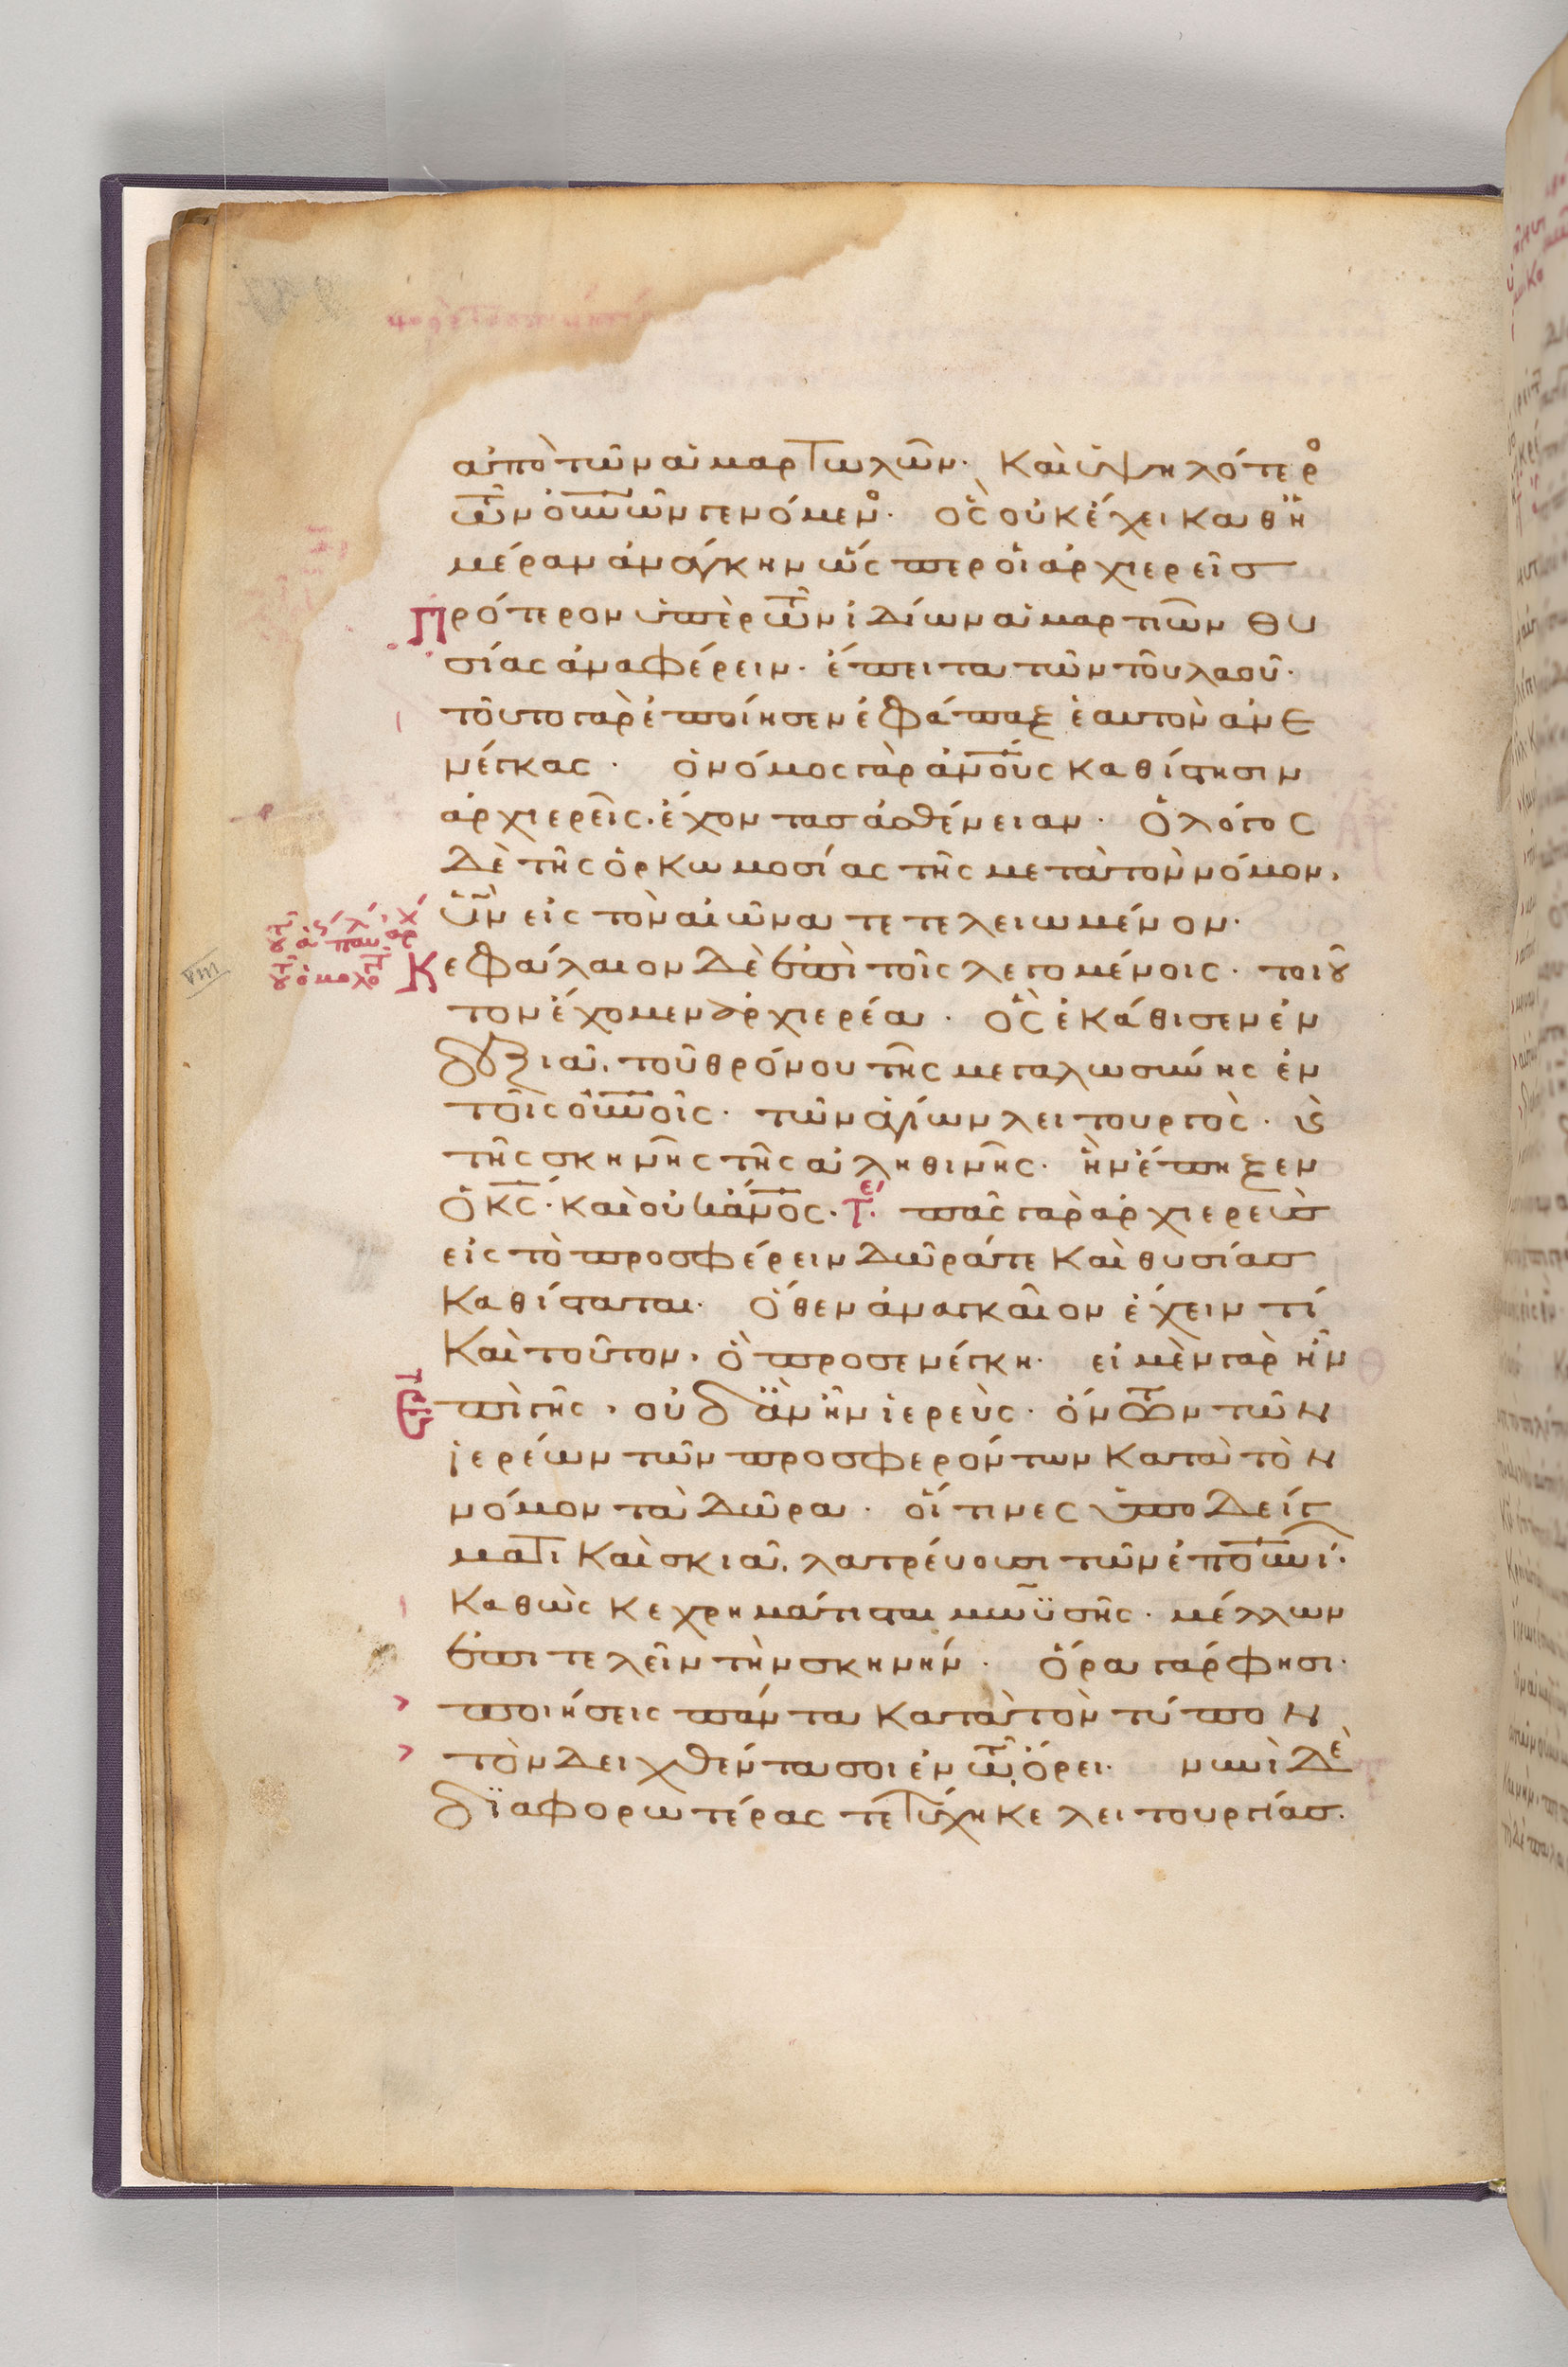 ἀπὸ τῶν ἁμαρτωλῶν· Καὶ ὑψηλότερο
τῶν οὐνῶν γενόμενο· ὃς οὐκ ἔχει καθ ἡ
μέραν ἀνάγκην ὥσπερ οἱ ἀρχιερεῖσ
Πρότερον ὑπὲρ τῶν ἰδίων ἁμαρτιῶν θυ
σίας ἀναφέρειν· ἔπειτα τῶν τοῦ λαοῦ·
τοῦτο γὰρ ἐποίησεν ἐφάπαξ ἑαυτὸν ἀνε
νέγκας· ὁ νόμος γὰρ ἀνους καθίστησιν
ἀρχιερεῖς· ἔχοντασ ἀσθένειαν· Ὁ λόγος
δὲ τῆς ὁρκωμοσίας τῆς μετὰ τὸν νόμον,
ὑν εἰς τὸν αἰῶνα τετελειωμένον·
Κεφάλαιον δὲ ἐπὶ τοῖς λεγομένοις· τοιοῦ
τον ἔχομεν ἀρχιερέα· ὃς ἐκάθισεν ἐν
δεξιᾶ, τοῦ θρόνου τῆς μεγαλωσύνης ἐν
τοῖς οὐνοῖς· τῶν ἁγίων λειτουργὸς· καὶ
τῆς σκηνῆς τῆς ἀληθινῆς· ἣν ἔπηξεν
ὁ κς· καὶ οὐκ ἄνος· τε πᾶς γὰρ ἀρχιερεὺσ
εἰς τὸ προσφέρειν δῶρά τε καὶ θυσίασ
καθίσταται· Ὅθεν ἀναγκαῖον ἔχειν τί
καὶ τοῦτον, ὃ προσενέγκη· εἰ μὲν γὰρ ἦν
ἐπὶ γῆς, οὐδ ἂν ἦν ἱερεὺς· ὄντων τῶν
ἱερέων τῶν προσφερόντων κατὰ τὸν
νόμον τὰ δῶρα· οἵτινες ὑποδείγ
ματι καὶ σκιᾶ, λατρεύουσι τῶν ἐπουνί·
καθὼς κεχρημάτισται μωϋσῆς· μέλλων
ἐπιτελεῖν τὴν σκηνήν· Ὅρα γάρ φησι·
ποιήσεις πάντα κατὰ τὸν τύπον
τὸν δειχθέντα σοι ἐν τῶ ὄρει· νυνὶ δὲ
διαφορωτέρας τετύχηκε λειτουργίασ·
VIII